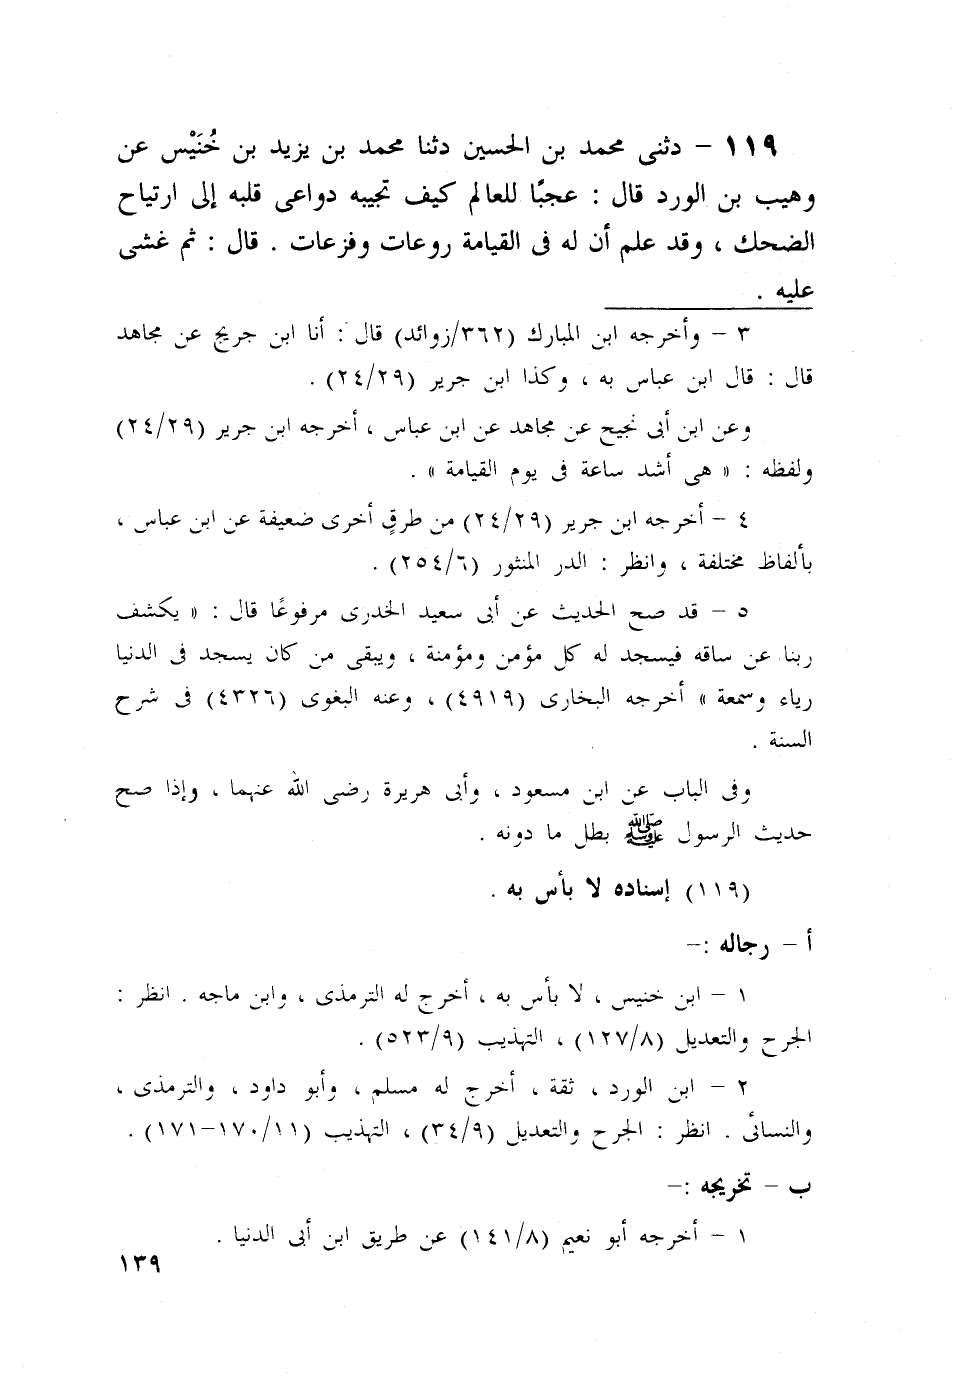 ١١٩ – دثنى محمد بن الحسين دثنا محمد بن يزيد بن خُنَيْس عن
وهيب بن الورد قال : عجبًا للعالم كيف تجيبه دواعى قلبه إلى ارتياح
الضحك ، وقد علم أن له فى القيامة روعات وفزعات . قال : ثم غشى
عليه .
٣ – وأخرجه ابن المبارك (٣٦٢/زوائد) قال : أنا ابن جريج عن مجاهد
قال : قال ابن عباس به ، وكذا ابن جرير (٢٤/٢٩) .
وعن ابن أبى نجيح عن مجاهد عن ابن عباس ، أخرجه ابن جرير (٢٤/٢٩)
ولفظه : « هى أشد ساعة فى يوم القيامة » .
٤ – أخرجه ابن جرير (٢٤/٢٩) من طرقٍ أخرى ضعيفة عن ابن عباس ،
بألفاظ مختلفة ، وانظر : الدر المنثور (٢٥٤/٦) .
٥ – قد صح الحديث عن أبى سعيد الخدرى مرفوعًا قال : « يكشف
ربنا عن ساقه فيسجد له كل مؤمن ومؤمنة ، ويبقى من كان يسجد فى الدنيا
رياء وسمعة » أخرجه البخارى (٤٩١٩) ، وعنه البغوى (٤٣٢٦) فى شرح
السنة .
وفى الباب عن ابن مسعود ، وأبى هريرة رضى الله عنهما ، وإذا صح
حديث الرسول ﷺ بطل ما دونه .
(١١٩) إسناده لا بأس به .
أ – رجاله :–
١ – ابن خنيس ، لا بأس به ، أخرج له الترمذى ، وابن ماجه . انظر :
الجرح والتعديل (١٢٧/٨) ، التهذيب (٥٢٣/٩) .
٢ – ابن الورد ، ثقة ، أخرج له مسلم ، وأبو داود ، والترمذى ،
والنسائى . انظر : الجرح والتعديل (٣٤/٩) ، التهذيب (١٧٠/١١–١٧١) .
ب – تخريجه :–
١ – أخرجه أبو نعيم (١٤١/٨) عن طريق ابن أبى الدنيا .
١٣٩